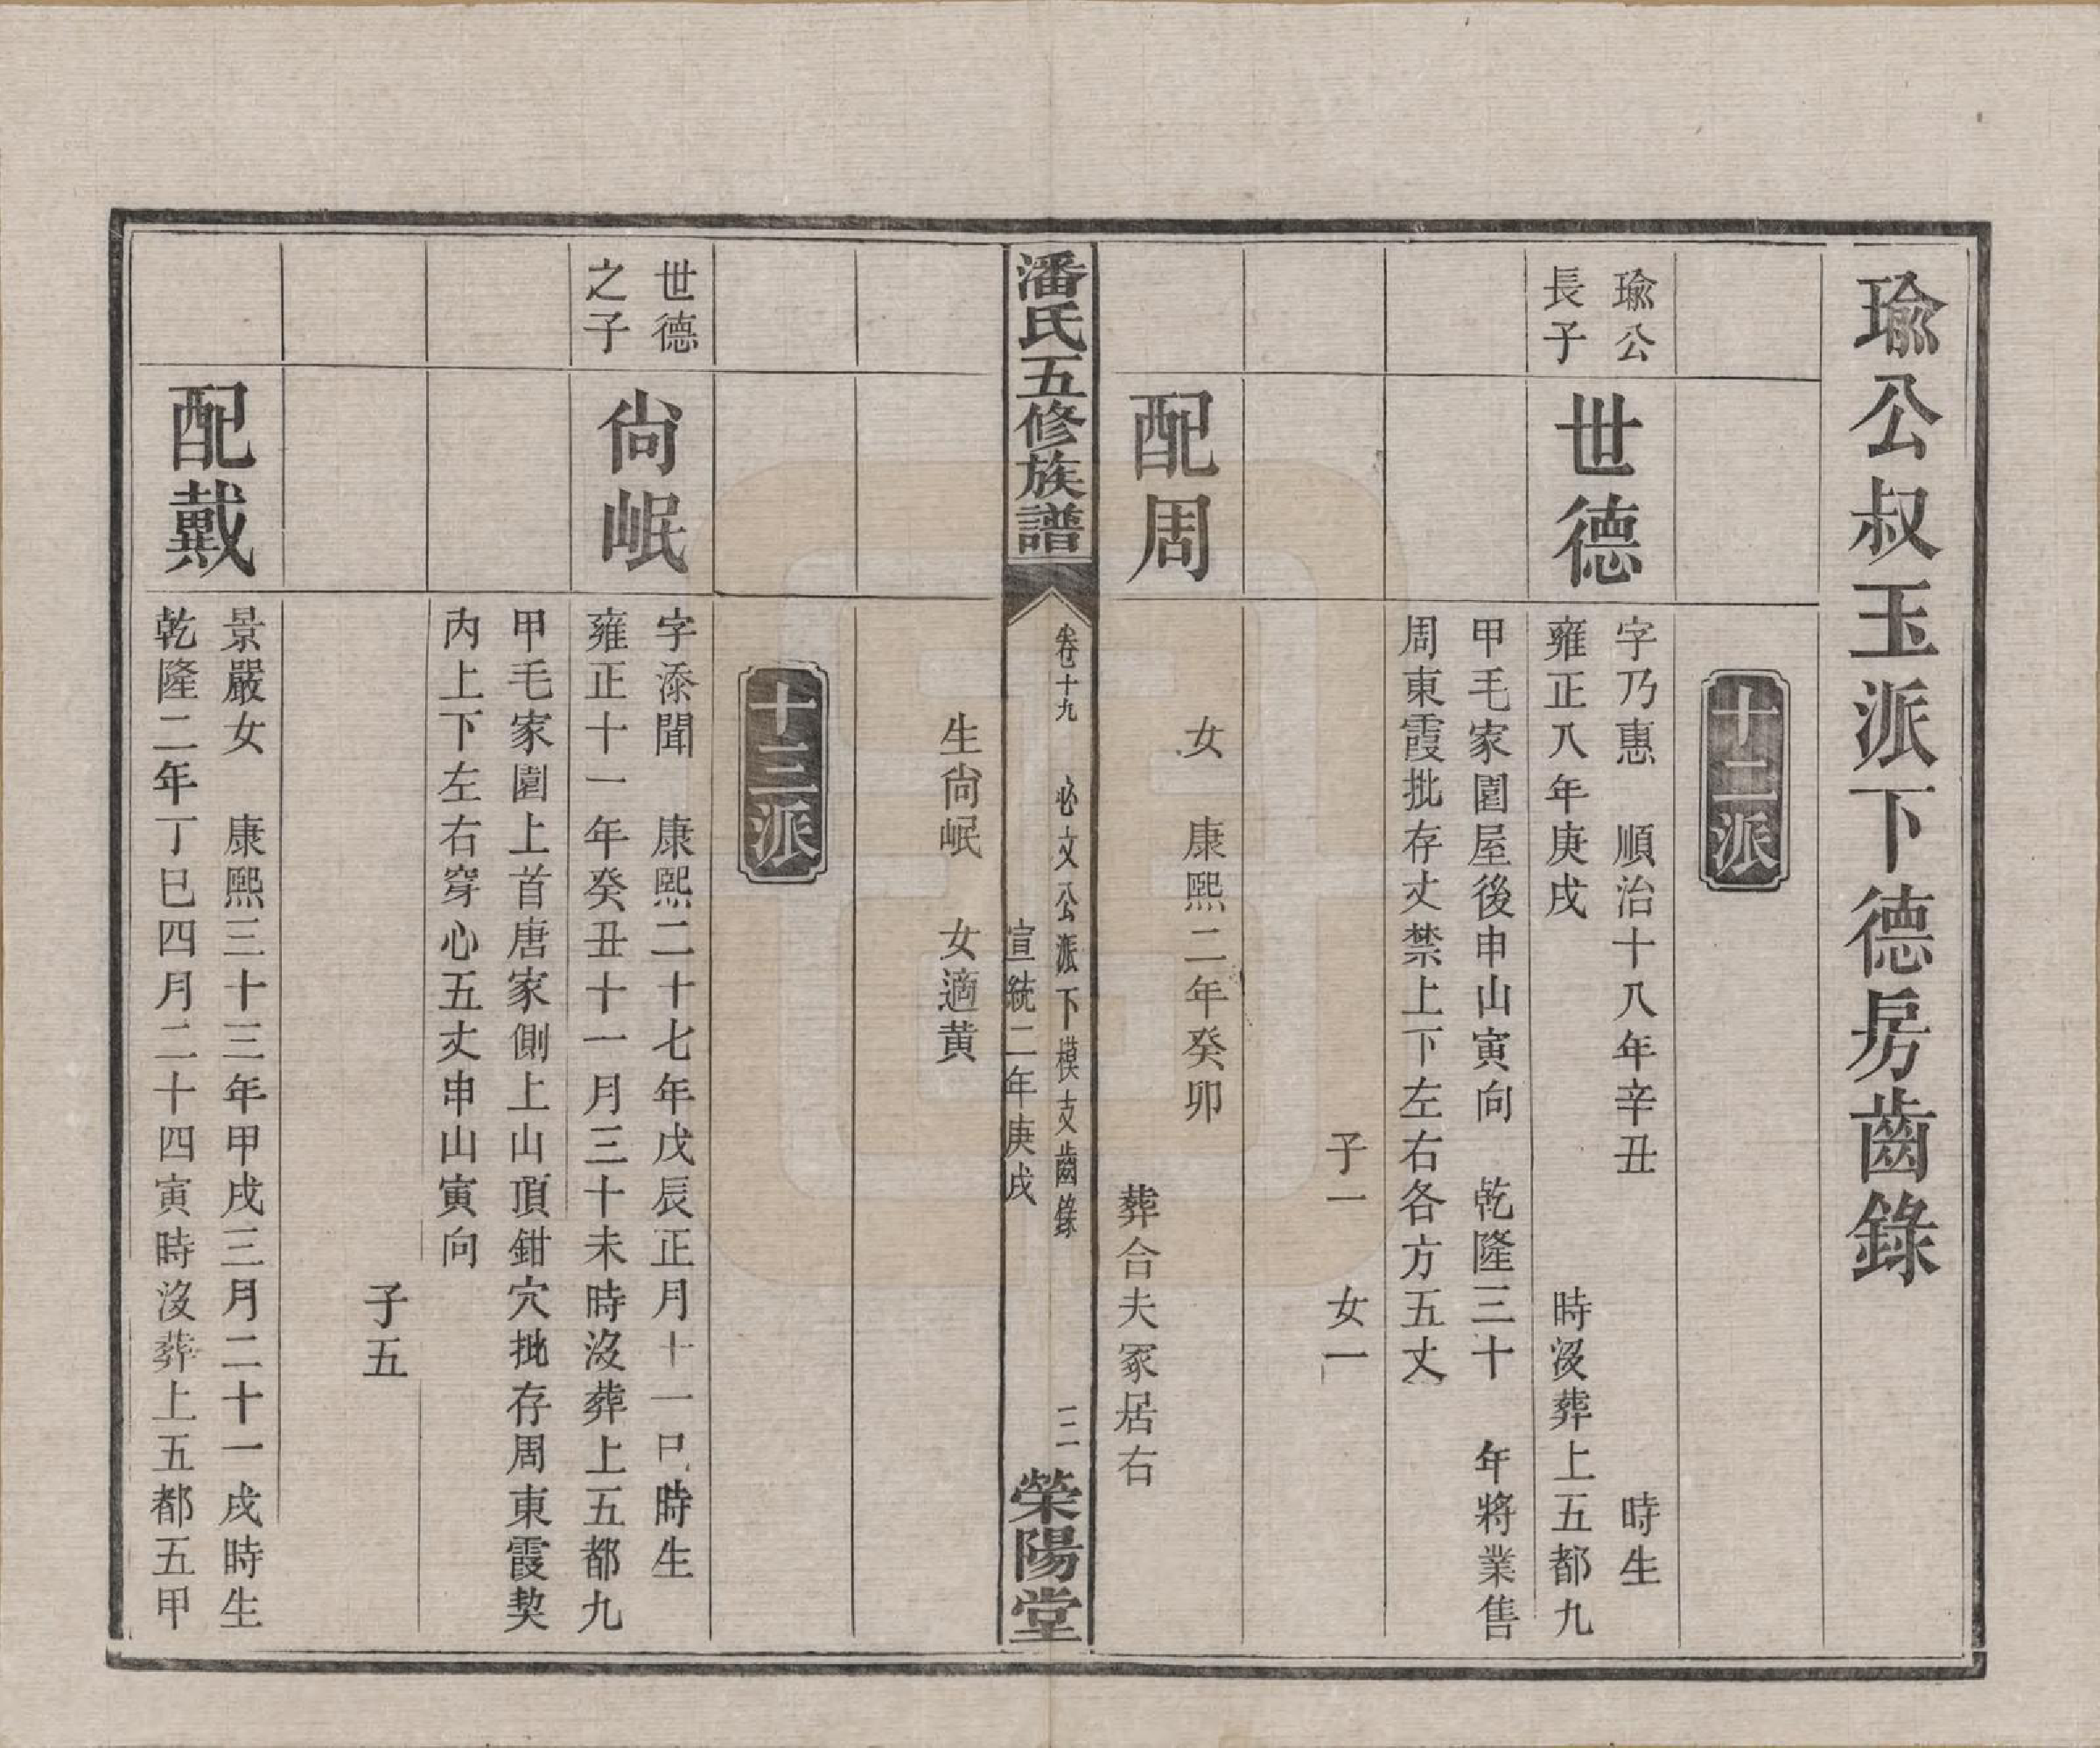 瑜公叔玉派下德房齒錄
十二派
瑜公
長子
世德
字乃惠　順治十八年辛丑　時生
雍正八年庚戌　時沒葬上五都九
甲毛家園屋後申山寅向　乾隆三十　年將業售
周東霞批存丈禁上下左右各方五丈
子一　女一
配周
女　康熙二年癸卯
葬合夫冢居右
潘氏五修族譜
卷十九　必文公派下模支齒錄　三
宣統二年庚戌
榮陽堂
生尙岷　女適黄
十三派
世德
之子
尙岷
字添聞　康熙二十七年戊辰正月十一巳時生
雍正十一年癸丑十一月三十未時沒葬上五都九
甲毛家園上首唐家側上山頂鉗穴批存周東霞契
內上下左右穿心五丈申山寅向
子五
配戴
景嚴女　康熙三十三年甲戌三月二十一戌時生
乾隆二年丁巳四月二十四寅時沒葬上五都五甲